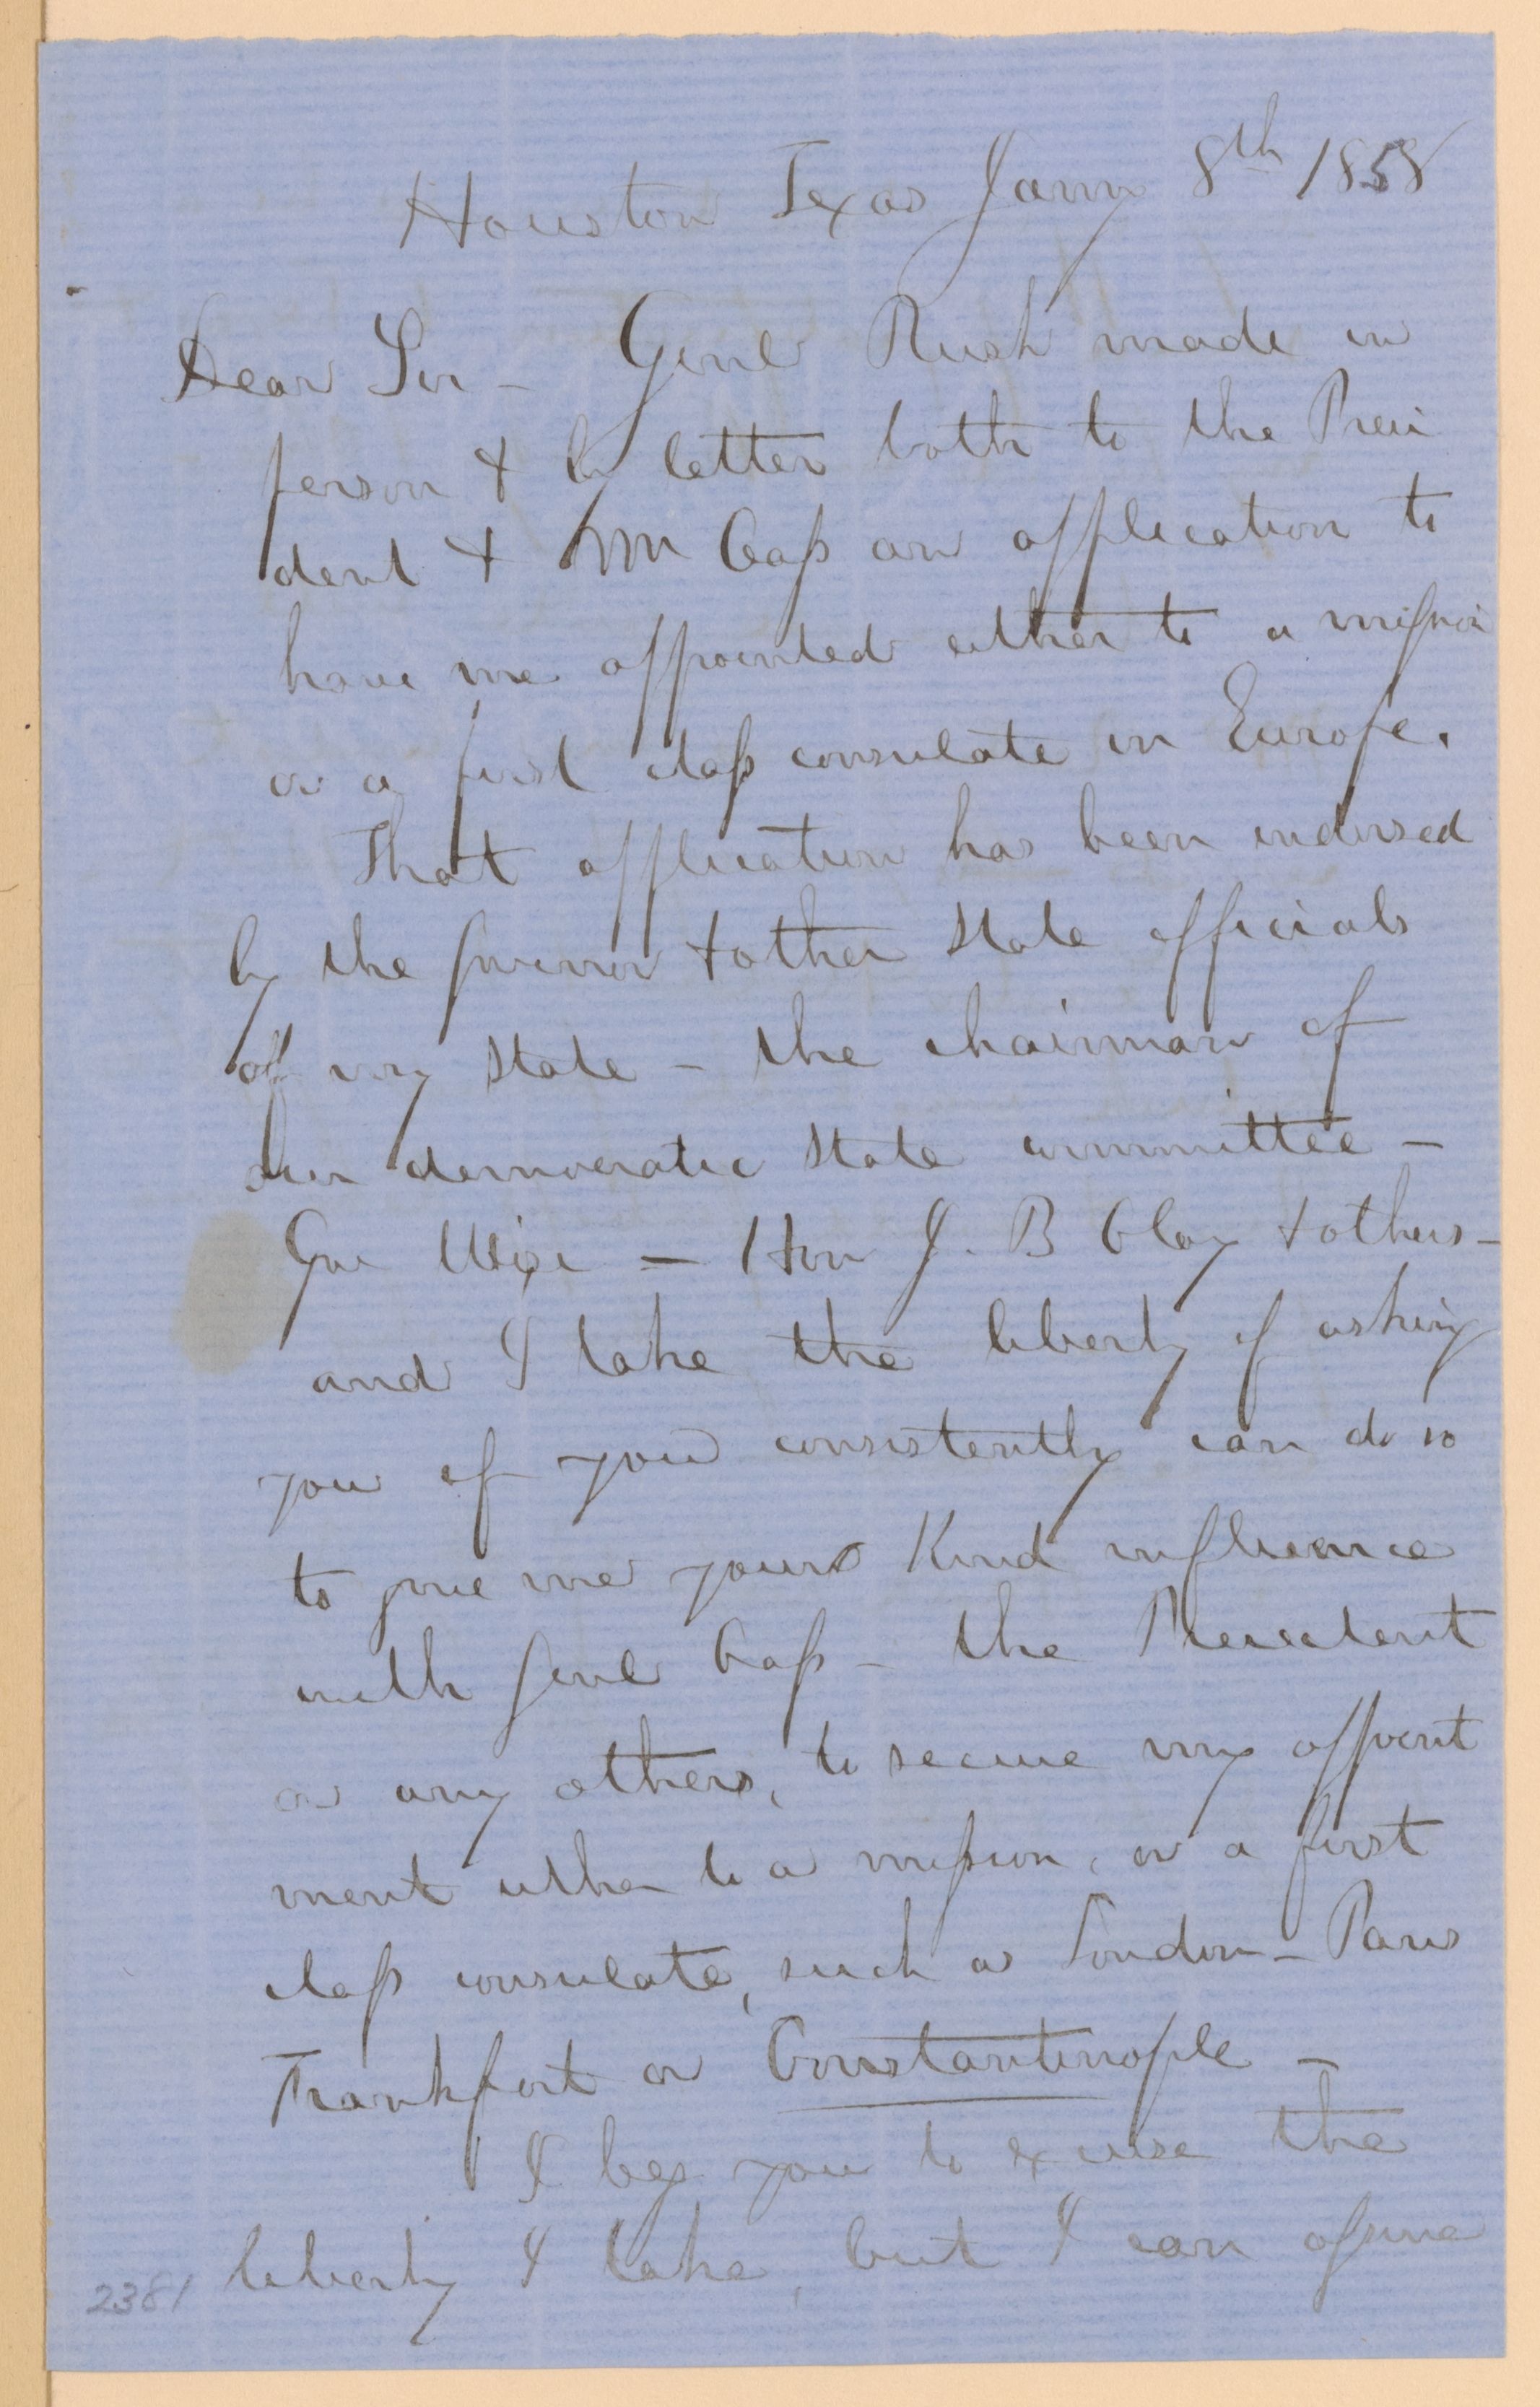 Houston Texas Jany 8th 1858
Dear Sir - Genl Rusk made in
person & by letter both to the Presi
dent & Mr Cass an application to
have me appointed either to a mission
or a first class consulate in Europe.
That application has been indorsed
by the governor & other state officials
of my state - the chairman of
our democratic state committee -
Gov Wise - Hon J. B Clay & others -
and I take the liberty of asking
you if you consistently can do so
to give me your kind influence
with Genl Cass - the President
or any others, to secure my appoint
ment either to a mission, or a first
class consulate, such as London - Paris
Frankfort or Constantinople -
I beg you to excuse the
liberty I take, but I can assure
2381